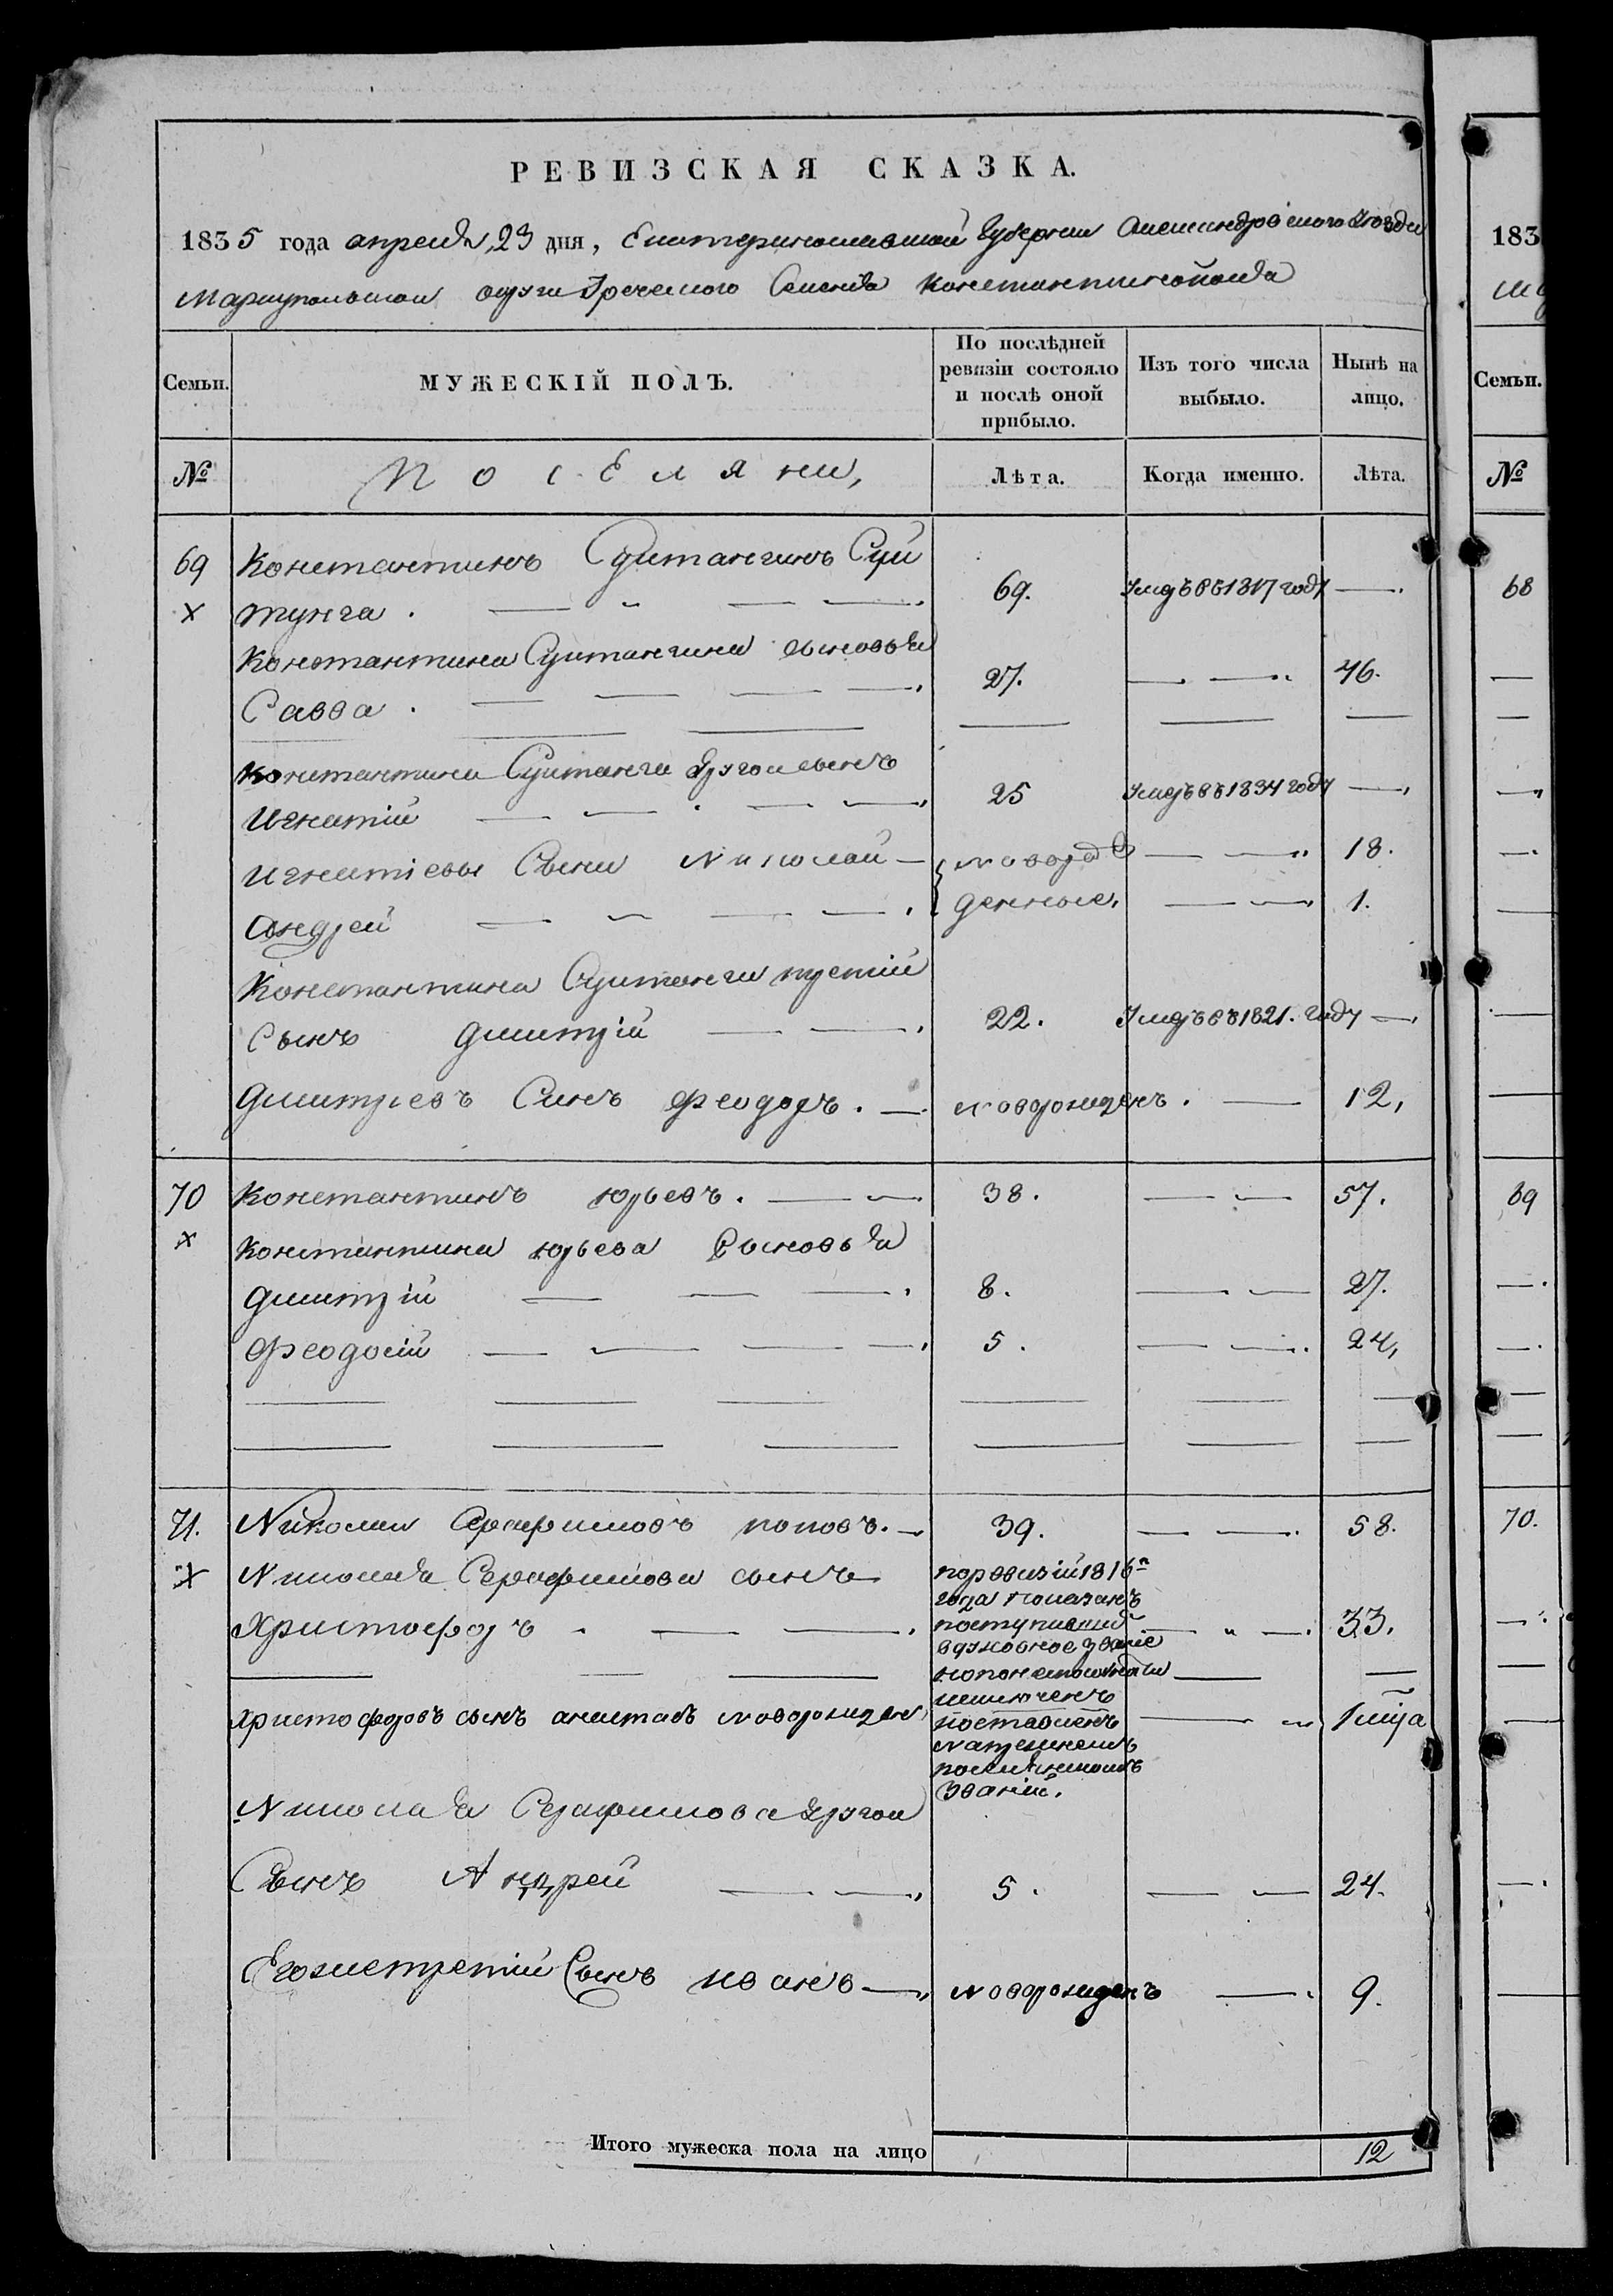 РЕВИЗСКАЯ СКАЗКА.
1835 года апреля, 23 дня, Екатеринославской Губернии Александровского Уезда
Мариупольской округи Греческого Селенія Константинополя
Семьи. МУЖЕСКІЙ ПОЛЪ. По послѣдней ревизіи состояло и послѣ оной прибыло. Изъ того числа выбыло. Нынѣ на лицо.
№ Поселяни, Лѣта. Когда именно. Лѣта.
69 Константинъ Султангинъ Сул
х тунга. 69. Умръ въ 1817 году —
Константина Султангина сыновья
Савва. 27. — 46.
Константина Султанги другои сынъ
Игнатій 25 Умръ въ 1834 году —
Игнатіевы Сыны Николай — новорож — 18.
Андрей денные, — 1.
Константина Султанги третій
Сынъ Дмитрій — 22. Умръ въ 1821. году —
Дмитріевъ Синъ Феодоръ. — новорожденъ. — 12,
70 Константинъ Юрьевъ. — 38. — 57.
х Константина Юрьева Сыновья
Дмитрій — 8. — 27.
Феодосій — 5. — 24,
71. Николаи Серафимовъ поповъ. — 39. — 58.
х Николая Серафимова сынъ по ревизіи 1816
года показанъ
Христофоръ — поступившій — 33.
в духовное званіе
исключенъ
Христофоровъ сынъ новорожден поставленъ — 1 мца
званіи.
Николая Серафимова другои
Сынъ Андрей — 5. — 24.
Его же третій Сынъ Иванъ —, новорожденъ — 9.
Итого мужеска пола на лицо 12
183
Семьи.
№
68
69
70.